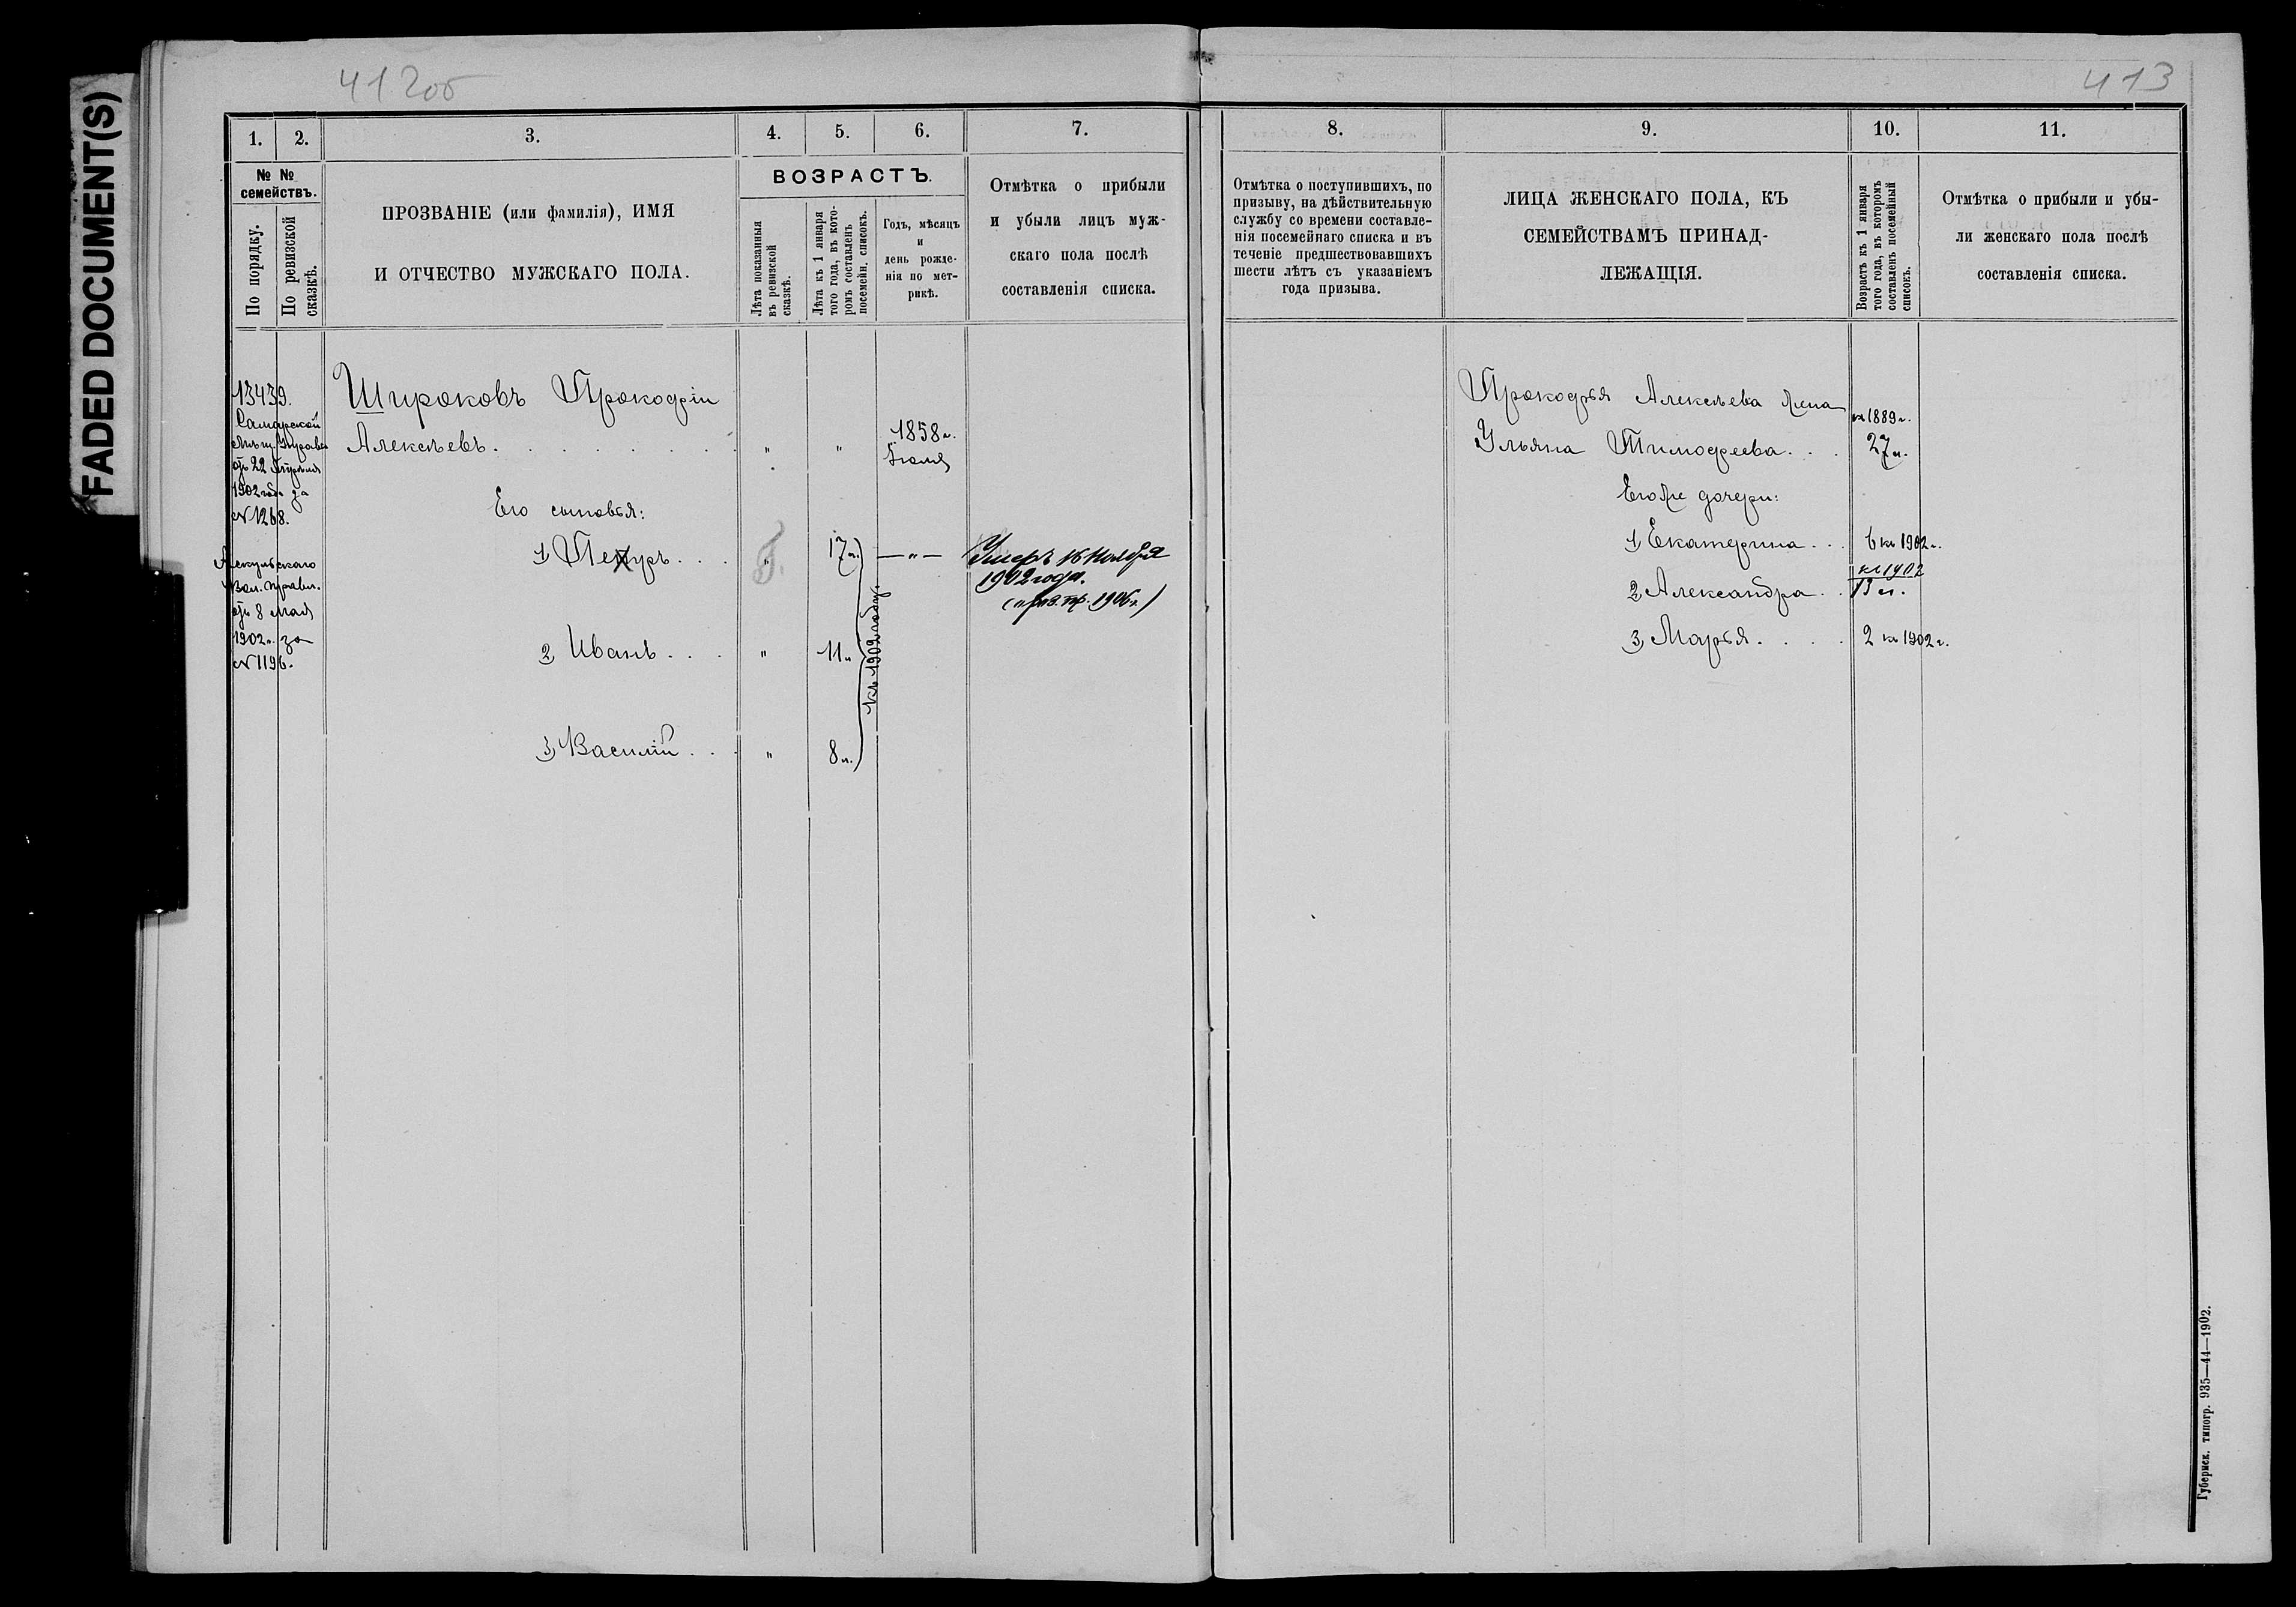 FADED DOCUMENT(S)
412об
413
1.
2.
3.
4.
5.
6.
7.
8.
9.
10.
11.
№ №
семействъ.
По порядку.
По ревизской
сказкѣ.
ПРОЗВАНІЕ (или фамилія), ИМЯ
И ОТЧЕСТВО МУЖСКАГО ПОЛА.
ВОЗРАСТЪ.
Лѣта показанныя
въ ревизской
сказкѣ.
Лѣта къ 1 января
того года, въ кото-
ромъ составленъ
посемейн. списокъ.
Годъ, мѣсяцъ
и
день рожде-
нія по мет-
рикѣ.
Отмѣтка о прибыли
и убыли лицъ муж-
скаго пола послѣ
составленія списка.
Отмѣтка о поступившихъ, по
призыву, на дѣйствительную
службу со времени составле-
нія посемейнаго списка и въ
теченіе предшествовавшихъ
шести лѣтъ съ указаніемъ
года призыва.
ЛИЦА ЖЕНСКАГО ПОЛА, КЪ
СЕМЕЙСТВАМЪ ПРИНАД-
ЛЕЖАЩІЯ.
Возрастъ къ 1 января
того года, въ которомъ
составленъ посемейный
списокъ.
Отмѣтка о прибыли и убы-
ли женскаго пола послѣ
составленія списка.
13439.
Самарской
Мѣщ. Управы
отъ 22 Апрѣля
1902 года за
№ 1268.
Вол. Правл.
отъ 8 Мая
1902 г. за
№ 1196.
Широковъ Прокофій
Алексѣевъ . . . . . . . . " " 1858 г.
Іюля
Его сыновья:
1, Петръ . . . " 17 л. — " — Умеръ 16 Ноября
1902 года.
(приз. пр. 1906 г.)
2, Иванъ . . . " 11 л.
3, Василій . . . " 8 л.
къ 1902 году.
Прокофья Алексѣева жена
къ 1889 г.
Ульяна Тимофеева . . . 27 л.
Его же дочери:
1, Екатерина . . . 6 къ 1902 г.
къ 1902
2, Александра . . 13 л.
3, Марья . . . . 2 къ 1902 г.
Губернск. типогр. 935—44—1902.